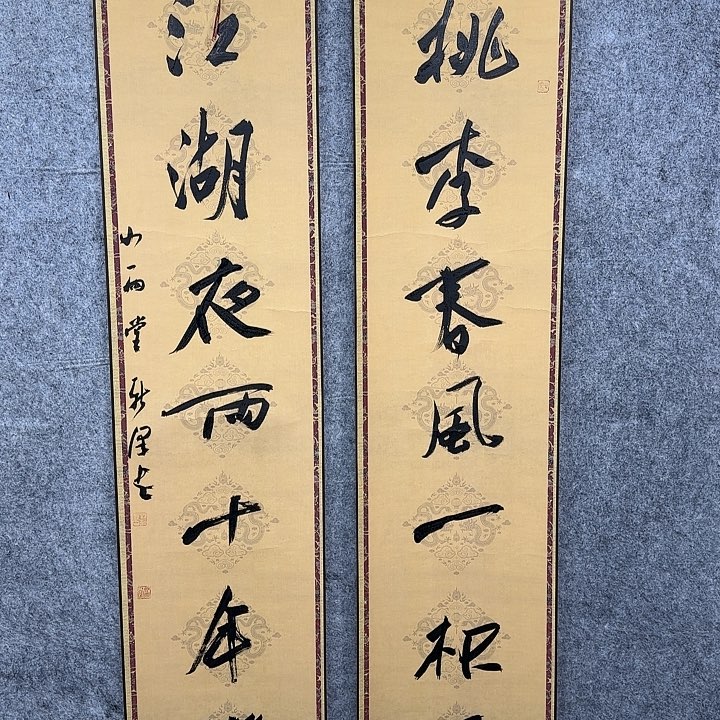 桃李春風一杯
江湖夜雨十年
山雨堂